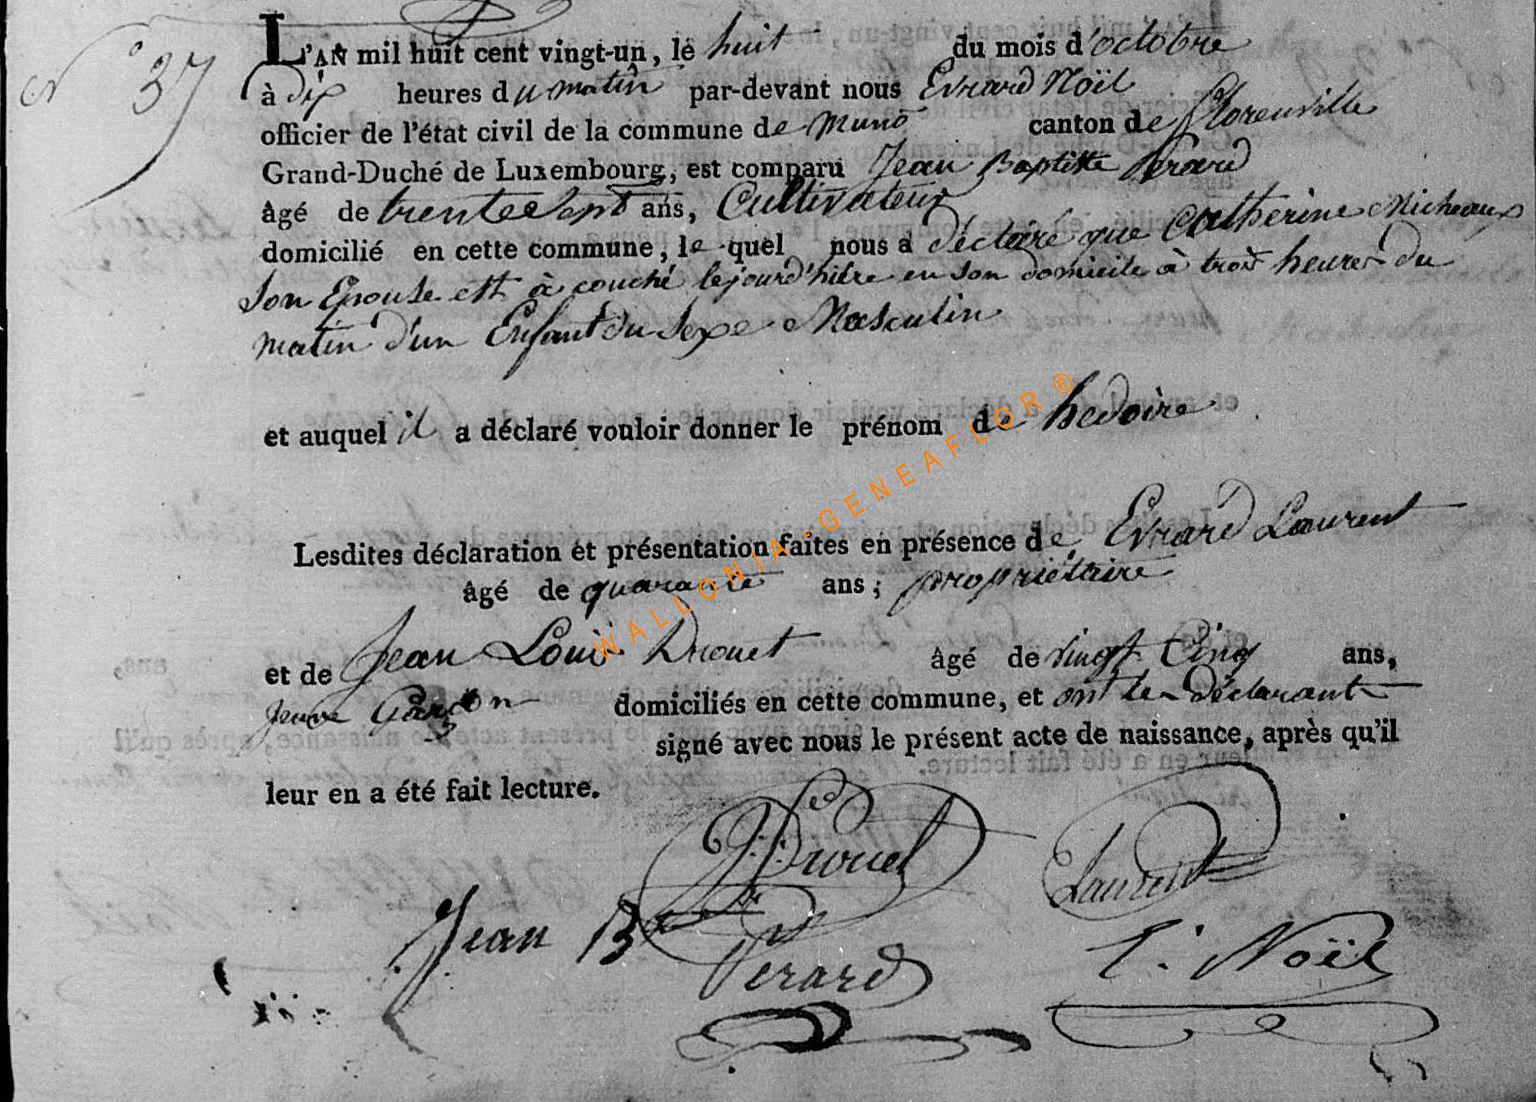 N° 37
L'AN mil huit cent vingt-un, le huit du mois d'octobre
à dix heures du matin par-devant nous Evrard Noël
officier de l'état civil de la commune de Muno canton de florenville
Grand-Duché de Luxembourg, est comparu Jean Baptitte Perard
âgé de trente Sept ans, Cultivateur
domicilié en cette commune, le quel nous a déclaré que Catherine Micheaux
Son Epouse ett à couché lejourd'hüre en son domicile à trois heures du
matin d'un Enfant du Sexe Masculin
et auquel il a déclaré vouloir donner le prénom de hedoire
Lesdites déclaration et présentation faites en présence de Evrard Laurent
âgé de quarante ans ; propriétaire
et de Jean Louis Drouet âgé de vingt Cinq ans,
jeune Garçon domiciliés en cette commune, et ont les déclarants
signé avec nous le présent acte de naissance, après qu'il
leur en a été fait lecture.
J: Drouet Laurent
Jean Bte Perard E. Noël
WALLONIA-GENEAFLOR ©